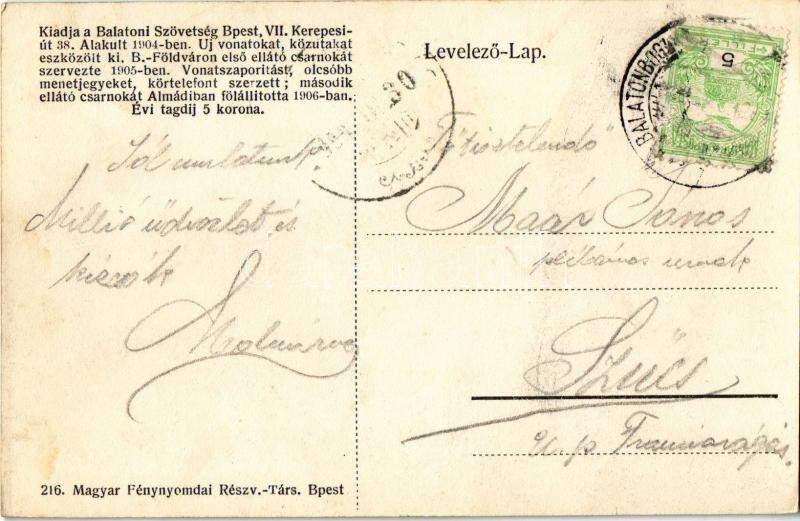 Kiadja a Balatoni Szövetség Bpest, VII. Kerepesi-
út 38. Alakult 1904-ben. Uj vonatokat, közutakat
eszközölt ki. B.-Földváron első ellátó csarnokát
szervezte 1905-ben. Vonatszaporitást, olcsóbb
menetjegyeket, körtelefont szerzett; második
ellátó csarnokát Almádiban fölállitotta 1906-ban.
Évi tagdij 5 korona.
Levelező-Lap.
BALATONBOGL
5
30
Jól mulatunk.
Millió üdvözlet és
Főtisztelendő
Maár János
plébános urnak
Szücs
u. p.
216. Magyar Fénynyomdai Részv.-Társ. Bpest